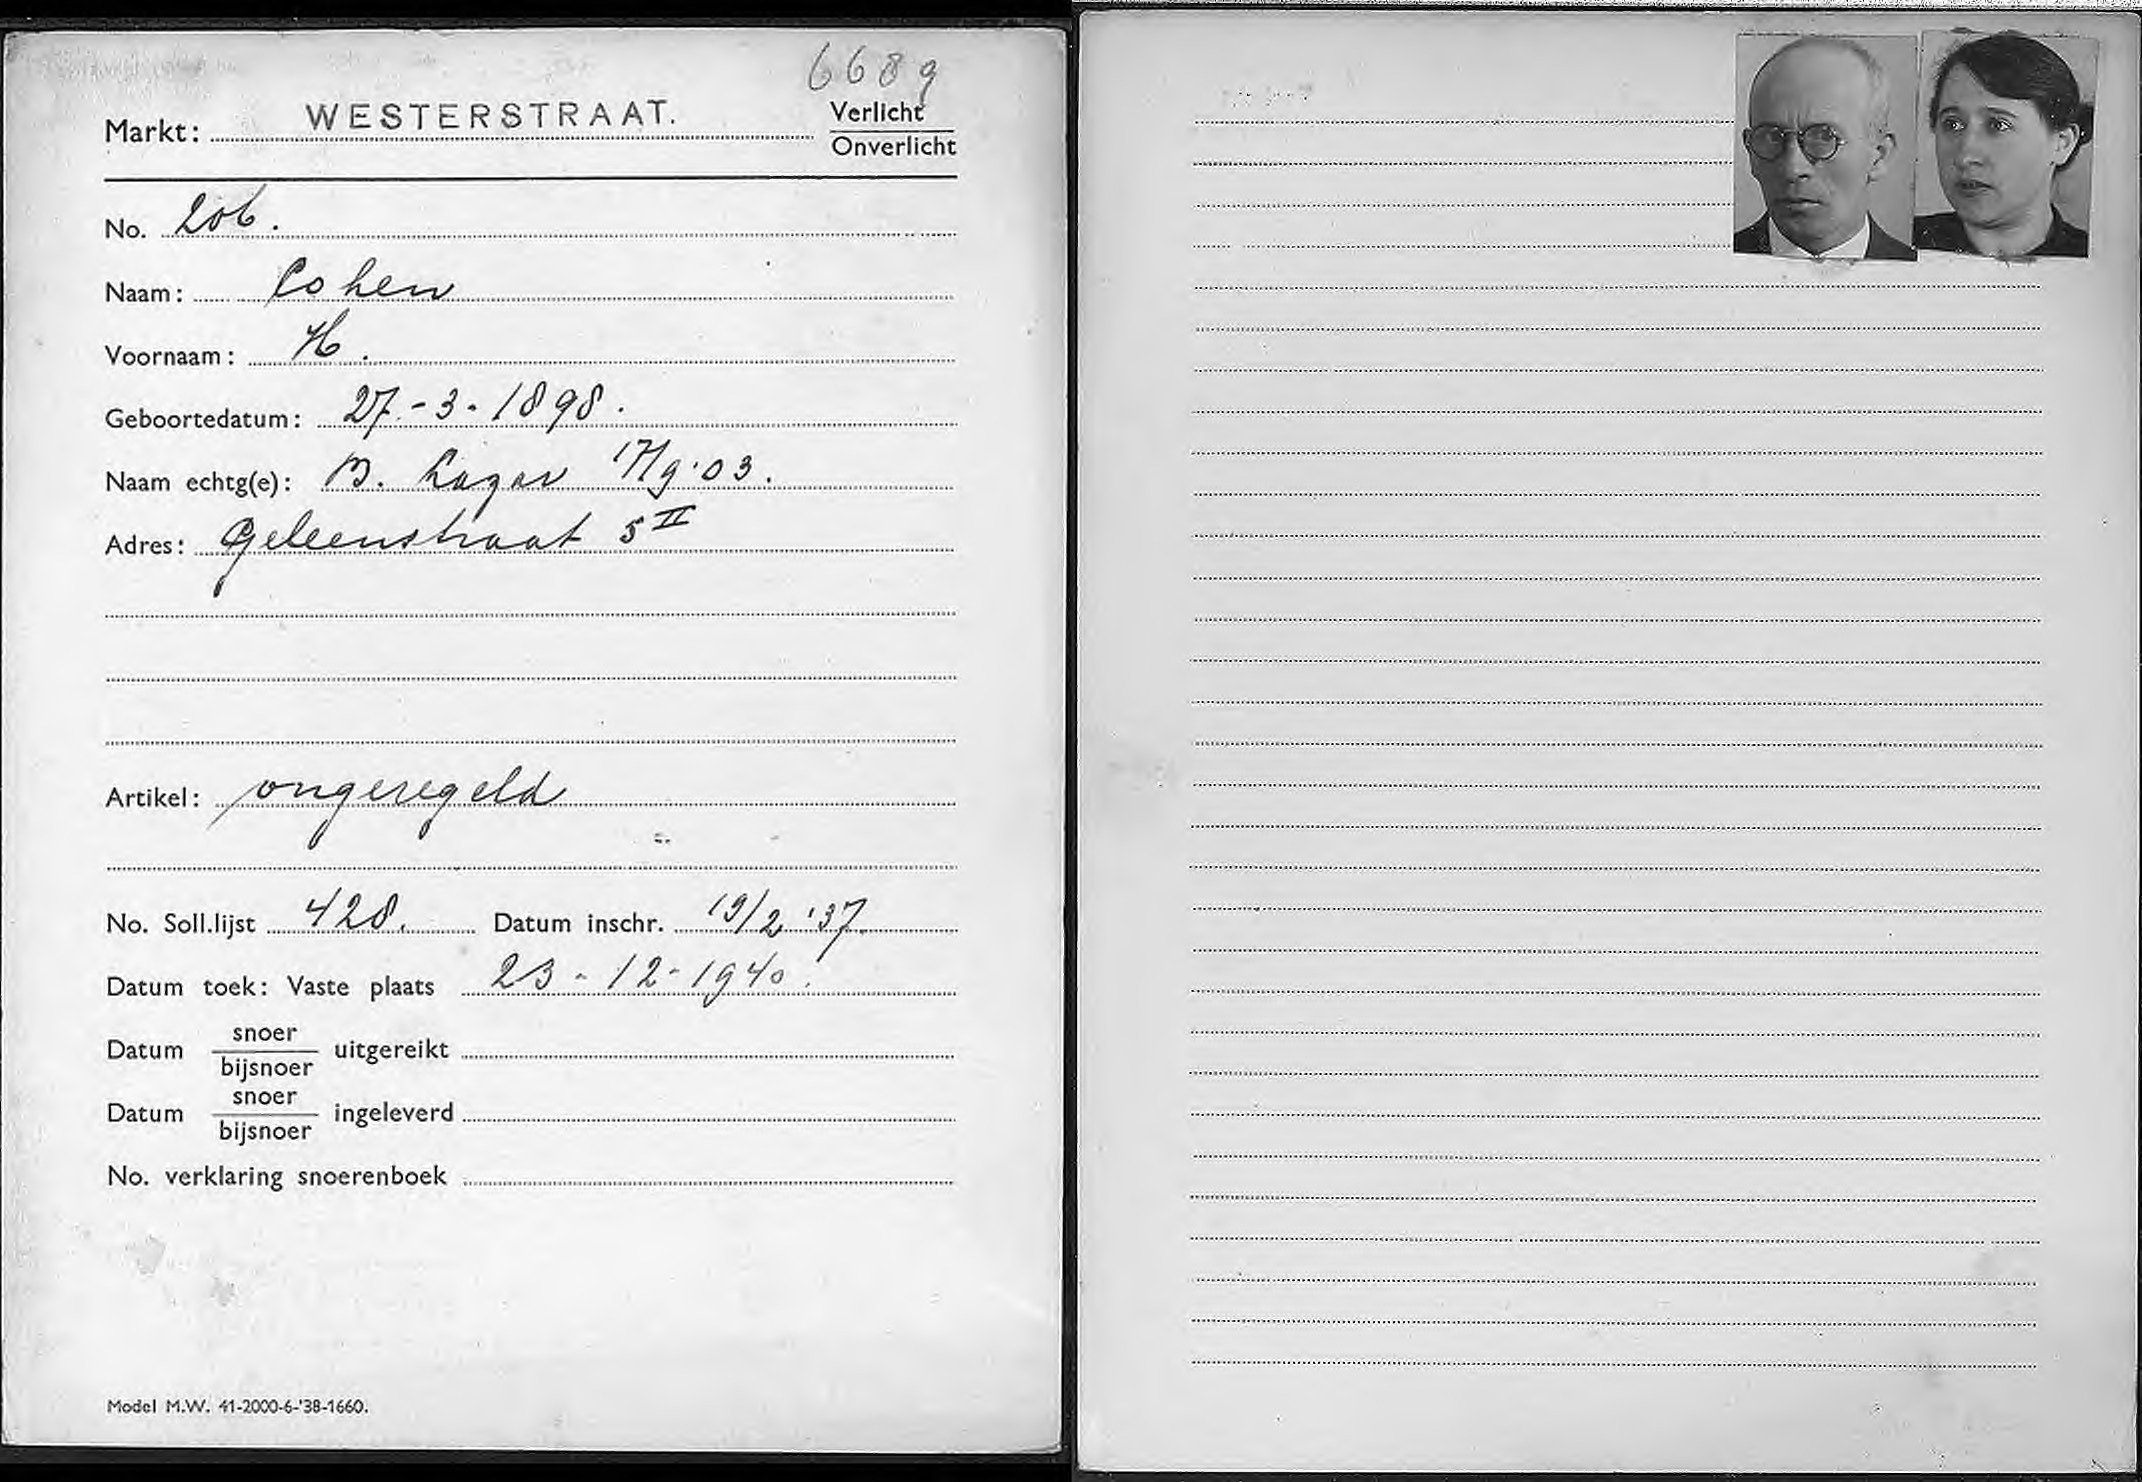 6689
Markt: WESTERSTRAAT.
Verlicht
Onverlicht
No. 206.
Naam: Cohen
Voornaam: H.
Geboortedatum: 27-3-1898.
Naam echtg(e): B. 17/9'03.
Adres: Geleenstraat 5 II
Artikel: ongeregeld
No. Soll.lijst 428. Datum inschr. 19/2 '37.
Datum toek: Vaste plaats 23-12-1940.
Datum snoer uitgereikt
bijsnoer
Datum snoer ingeleverd
bijsnoer
No. verklaring snoerenboek
Model M.W. 41-2000-6-'38-1660.